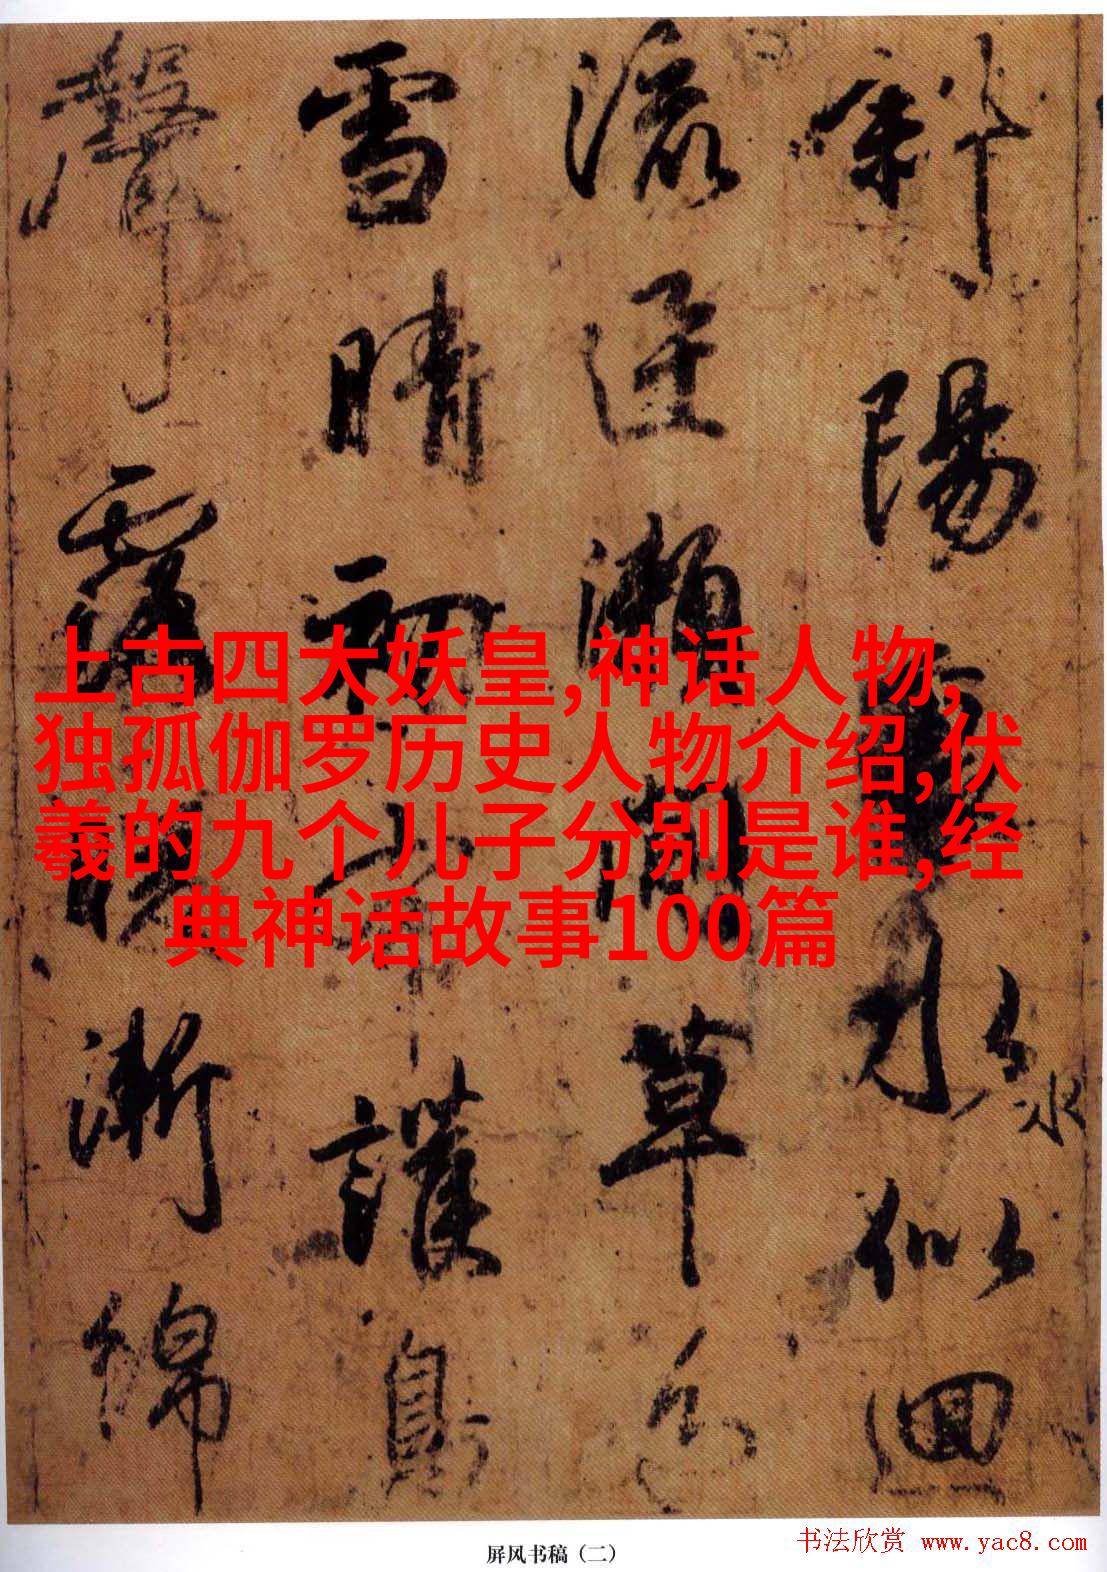 斜陽水似迴
流逕瀬間草色
雪晴初
聲露暖漸綿
上古四大妖皇,神话人物,
独孤伽罗历史人物介绍,伏
羲的九个儿子分别是谁,经
典神话故事100篇
屏风书稿（二）
书法欣赏 www.yac8.com